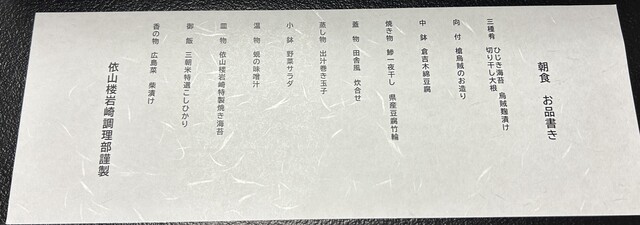 朝食　お品書き
三種肴　ひじき海苔　烏賊麹漬け
切り干し大根
向　付　槍烏賊のお造り
中　鉢　倉吉木綿豆腐
焼き物　鯵一夜干し　県産豆腐竹輪
蓋　物　田舎風　炊合せ
蒸し物　出汁巻き玉子
小　鉢　野菜サラダ
温　物　蜆の味噌汁
皿　物　依山楼岩崎特製焼き海苔
御　飯　三朝米特選こしひかり
香の物　広島菜　柴漬け
依山楼岩崎調理部謹製